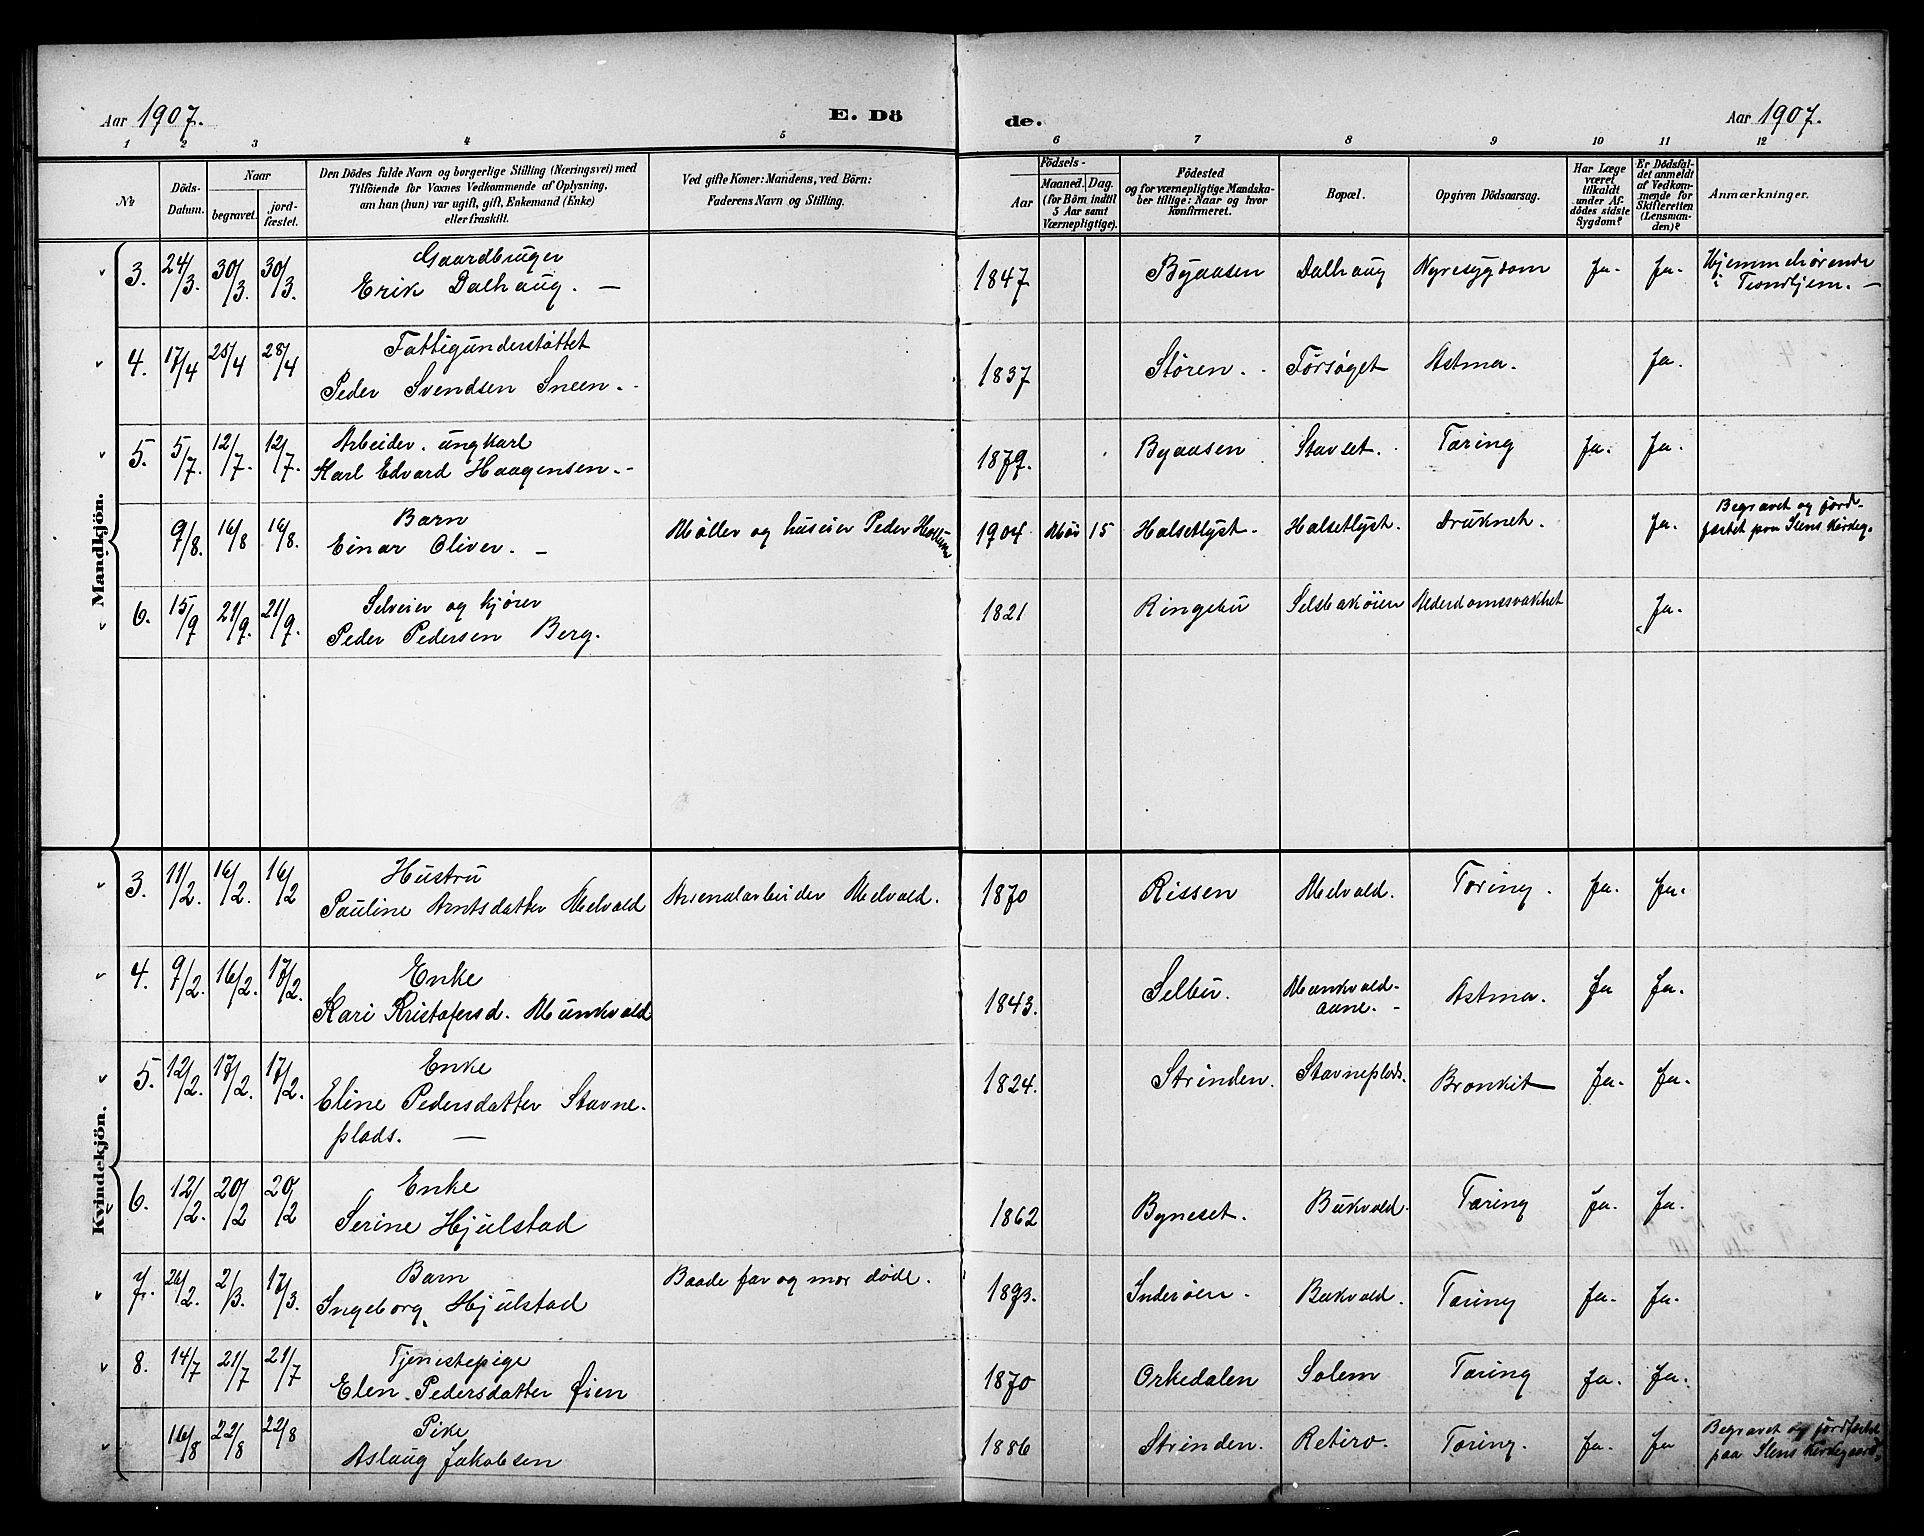 Aar 1907.
E. Dö
de.
Aar 1907.
1 2 3 4 5 6 7 8 9 10 11 12
№
Döds-
Datum.
Naar
begravet.
jord-
fæstet.
Den Dödes fulde Navn og borgerlige Stilling (Næringsvei) med
Tilföiende for Voxnes Vedkommende af Oplysning,
om han (hun) var ugift, gift, Enkemand (Enke)
eller fraskilt.
Ved gifte Koner: Mandens, ved Börn:
Faderens Navn og Stilling.
Födsels-
Aar
Maaned. Dag.
(for Börn indtil
5 Aar samt
Værnepligtige).
Födested
og for værnepligtige Mandska-
ber tillige: Naar og hvor
konfirmeret.
Bopæl.
Opgiven Dödsaarsag.
Har Læge
været
tilkaldt
under Af-
dödes sidste
Sygdom?
Er Dödsfal-
det anmeldt
af Vedkom-
mende for
Skifteretten
(Lensman-
den)?
Anmærkninger.
Mandkjön.
3. 24/3. 30/3. 30/3. Gaardbruger
Erik Dalhaug. — 1847 Byaasen Dalhaug Nyresygdom Ja. Ja. Hjemmehørende
i Trondhjem. —
4. 17/4 25/4 28/4 Fattigunderstøttet
Peder Svendsen Sneen. 1837 Støren. Forsøget Astma. Ja.
5. 5/7. 12/7. 12/7. Arbeider. ungkarl
Karl Edvard Haagensen. 1879. Byaasen Stavset. Tæring Ja. Ja.
9/8. 16/8 16/8. Barn
Einar Oliver. — Møller og huseier Peder 1904 Mai 15 Halsetlyst. Halsetlyst. Druknet. Ja. Begravet og jord-
fæstet paa Ilens Kirkeg.
6. 15/9 21/9. 21/9. Selveier og kjører
Peder Pedersen Berg. 1821 Ringebu Selsbakøien Alderdomssvakhet Ja.
Kvindekjön.
3. 11/2. 16/2. 16/2 Hustru
Pauline Arntsdatter Melvald Arsenalarbeider Melvald. 1870 Rissen Melvald. Tæring. Ja. Ja.
4. 9/2. 16/2. 17/2. Enke
Kari Kristofersd. Munkvold 1843. Selbu. Munkvold-
aune. - Astma. Ja Ja.
5. 12/2. 17/2. 17/2. Enke
Eline Pedersdatter Stavne-
plads. — 1824. Strinden. Stavneplads. Bronkit Ja. Ja.
6. 12/2. 20/2 20/2 Enke
Serine Hjulstad 1862 Byneset. Bukvold. Tæring Ja. Ja.
7. 26/2. 2/3. 17/3. Barn
Ingeborg Hjulstad Baade far og mor døde. 1893. Inderøen. Bukvold. Tæring Ja. Ja.
8. 14/7 21/7 21/7 Tjenestepige
Elen Pedersdatter Øien 1870 Orkedalen Solem Tæring Ja. Ja.
16/8 22/8 22/8 Pike
Aslaug Jakobsen 1886 Strinden. Retiro. Tæring. Ja. Ja Begravet og jordfæstet
paa Ilens Kirkegaard.